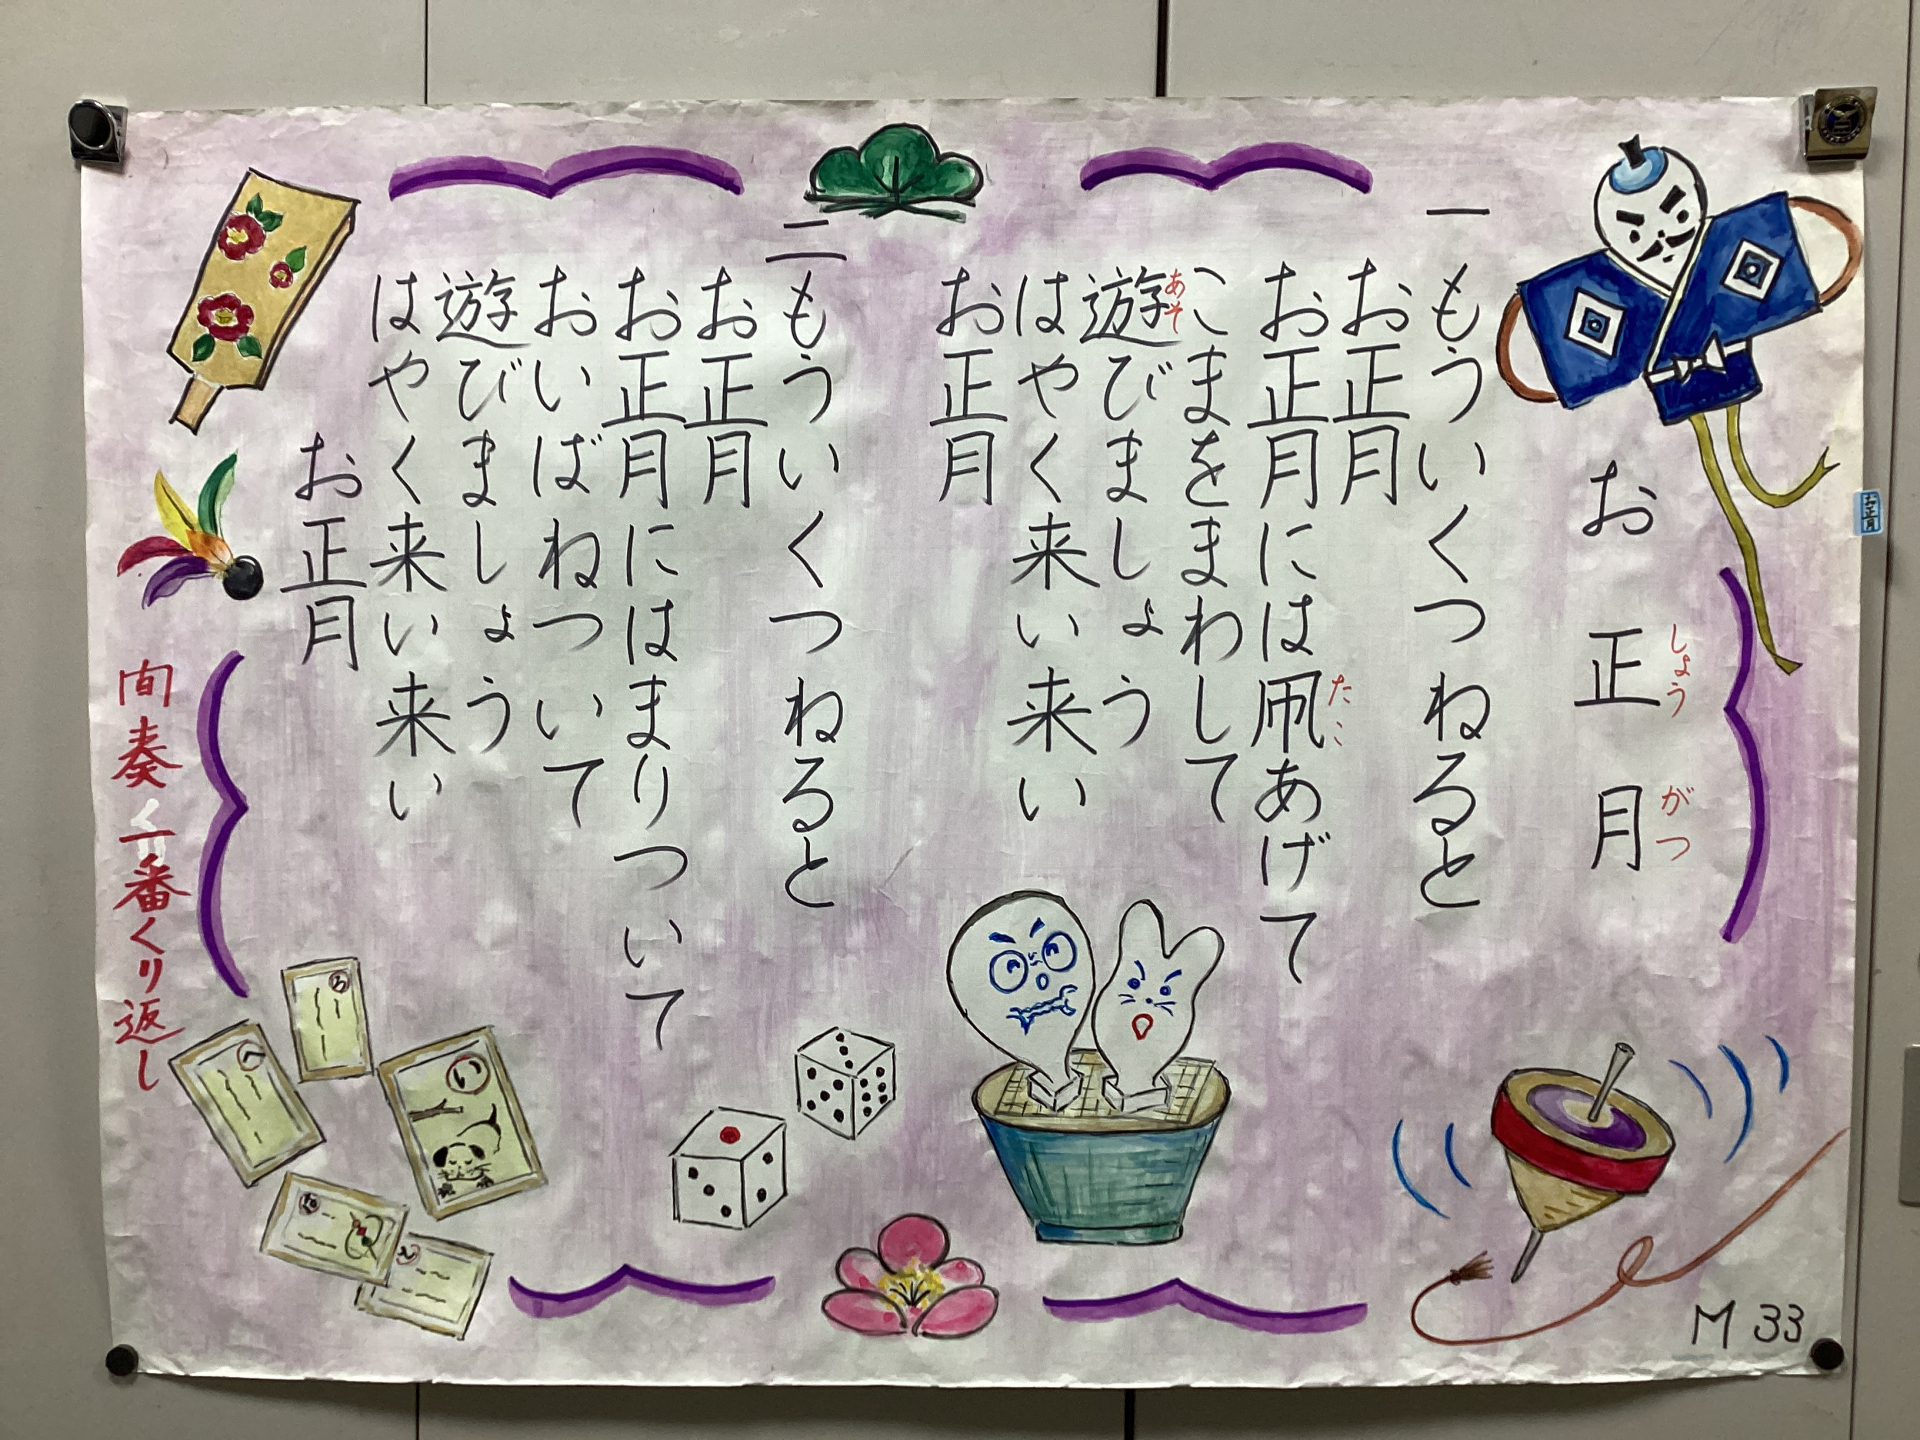 お正月
しょう
がつ
一
もういくつねると
お正月
お正月には凧あげて
たこ
こまをまわして
遊びましょう
あそ
はやく来い来い
お正月
二
もういくつねると
お正月
お正月にはまりついて
おいばねついて
遊びましょう
はやく来い来い
お正月
間奏く一番くり返し
ろ
へ
い
M 33